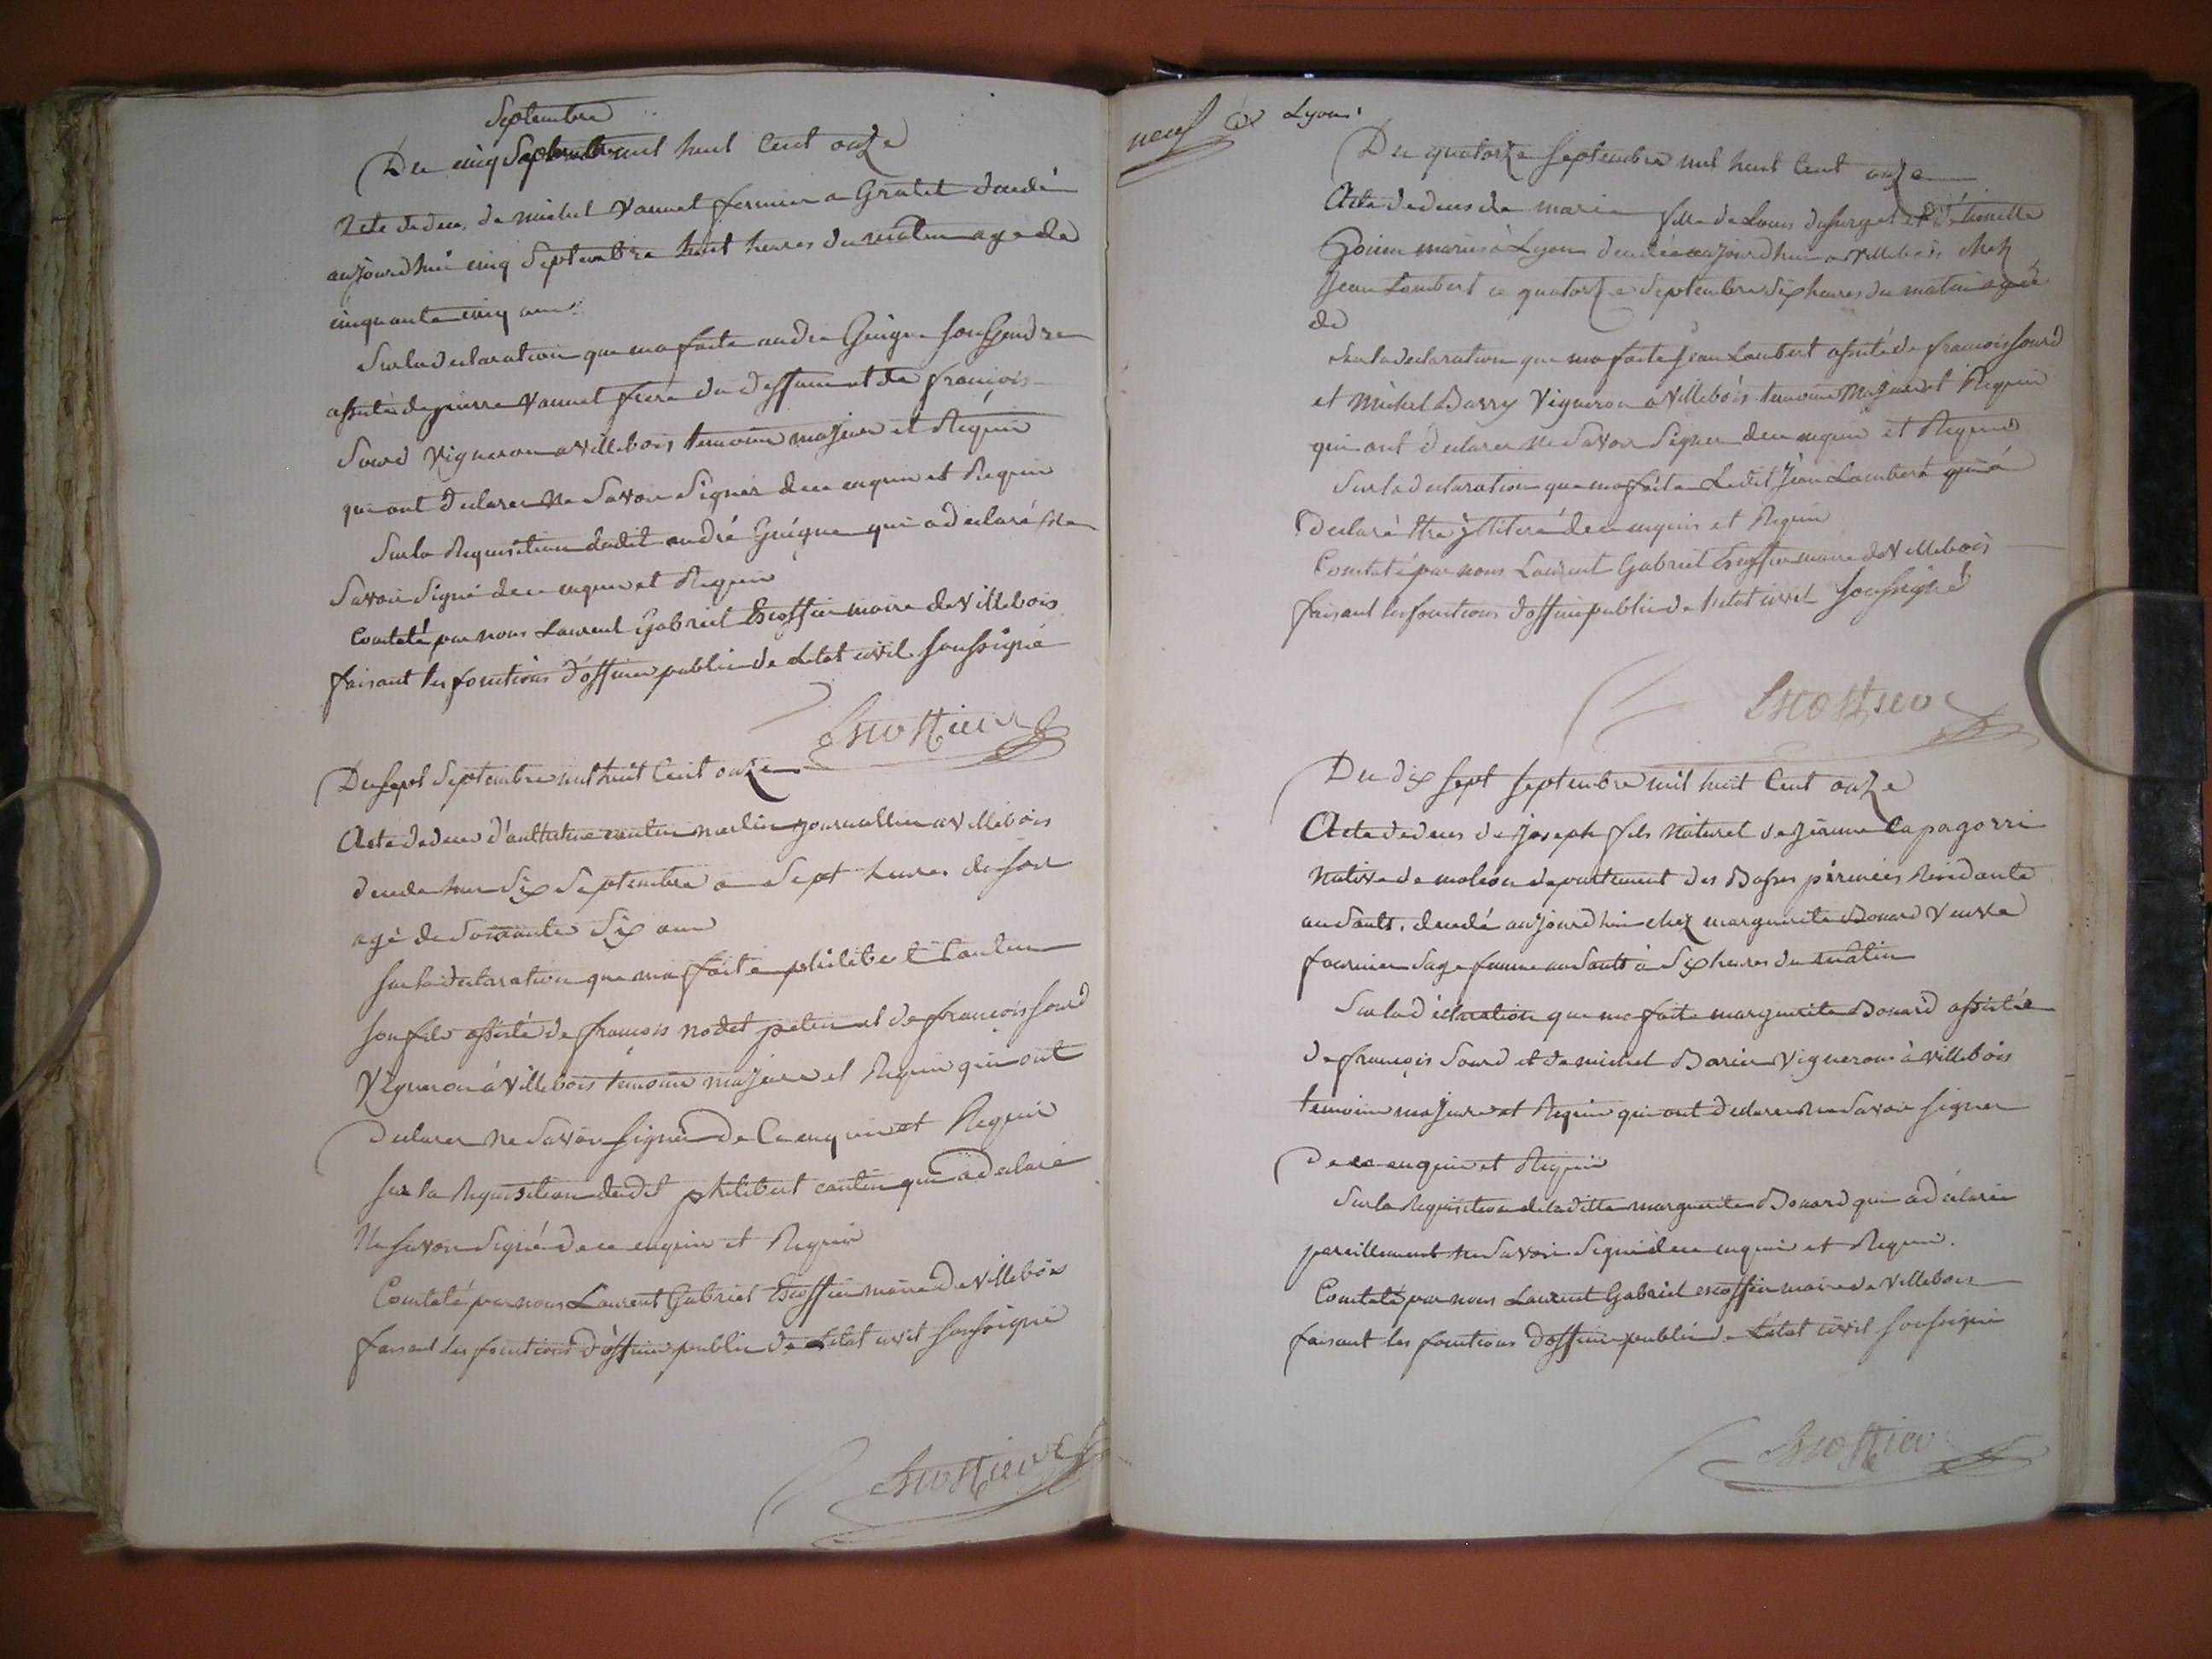 Septembre
Du cinq Septembre mil huit Cent onze
Acte de deces de michel Vannet fermier a Gratet decedé
aujourdhui cinq Septembre huit heures du matin age de
cinquante cinq ans
Sur la declaration que ma faite andré Guigue son Gendre
assisté de pierre Vannet frere du deffunt et de françois
Sourd Vigneron a villebois temoins majeurs et Requis
qui ont declarer ne Savoir Signer de ce enquis et Requis
Sur la Requisition dudit andré Guigue qui a declaré ne
Savoir Signé de ce enquis et Requis
Constaté par nous Laurent Gabriel Escoffier maire de Villebois
faisant les fonctions d'officier public de Letat civil soussigné
Escoffier
Du sept Septembre mil huit Cent onze
Acte de deces d'anthelme cantin journallier a villebois
decedé hier Six Septembre a Sept heures du soir
agé de Soixante Six ans
sur la declaration que ma faite philibert Cantin
son fils assisté de françois nodet et de françois sourd
Vigneron à Villebois temoins majeurs et Requis qui ont
declarer ne Savoir signer de Ce enquis et Requis
sur la Requisition dudit philibert cantin qui a declaré
Ne savoir Signé de ce enquis et Requis
Constaté par nous Laurent Gabriel Escoffier maire de villebois
faisant les fonctions d'officier public de Letat civil soussigné
Escoffier
neuf Lyon
Du quatorze septembre mil huit Cent onze
Acte de deces de marie fille de Louis et d'étiennette
mariés à Lyon decedée aujourdhui a villebois chez
Jean Lambert ce quatorze Septembre Six heures du matin agée
de
Sur la declaration que ma faite Jean Lambert assisté de francois sourd
et Michel Barry Vigneron a villebois temoins Majeurs et Requis
qui ont declarer ne Savoir Signer de ce enquis et Requis
Sur la declaration que ma faite Ledit Jean Lambert qui a
declaré Etre illiteré de ce enquis et Requis
Constaté par nous Laurent Gabriel Escoffier maire de Villebois
faisant les fonctions d'officier public de letat civil soussigné
Escoffier
Du dix sept septembre mil huit Cent onze
Acte de deces de joseph fils Naturel de jeanne Capagorri
Native de moleon departement des Basses pirenées Residante
au Sault, decedé aujourdhui chez marguerite Bouard Veuve
fournier Sage femme au Sault à Six heures du matin
Sur la déclaration que ma faite marguerite Bouard assistée
de françois Sourd et de michel Barier Vignerons à villebois
temoins majeurs et Requis qui ont declarer ne Savoir signer
De ce enquis et Requis
Sur la Requisition de la ditte marguerite Bouard qui a déclarée
pareillement ne Savoir Signé de ce enquis et Requis.
Constaté par nous Laurent Gabriel escoffier maire de Villebois
faisant les fonctions d'officier public de L'état civil soussigné
Escoffier